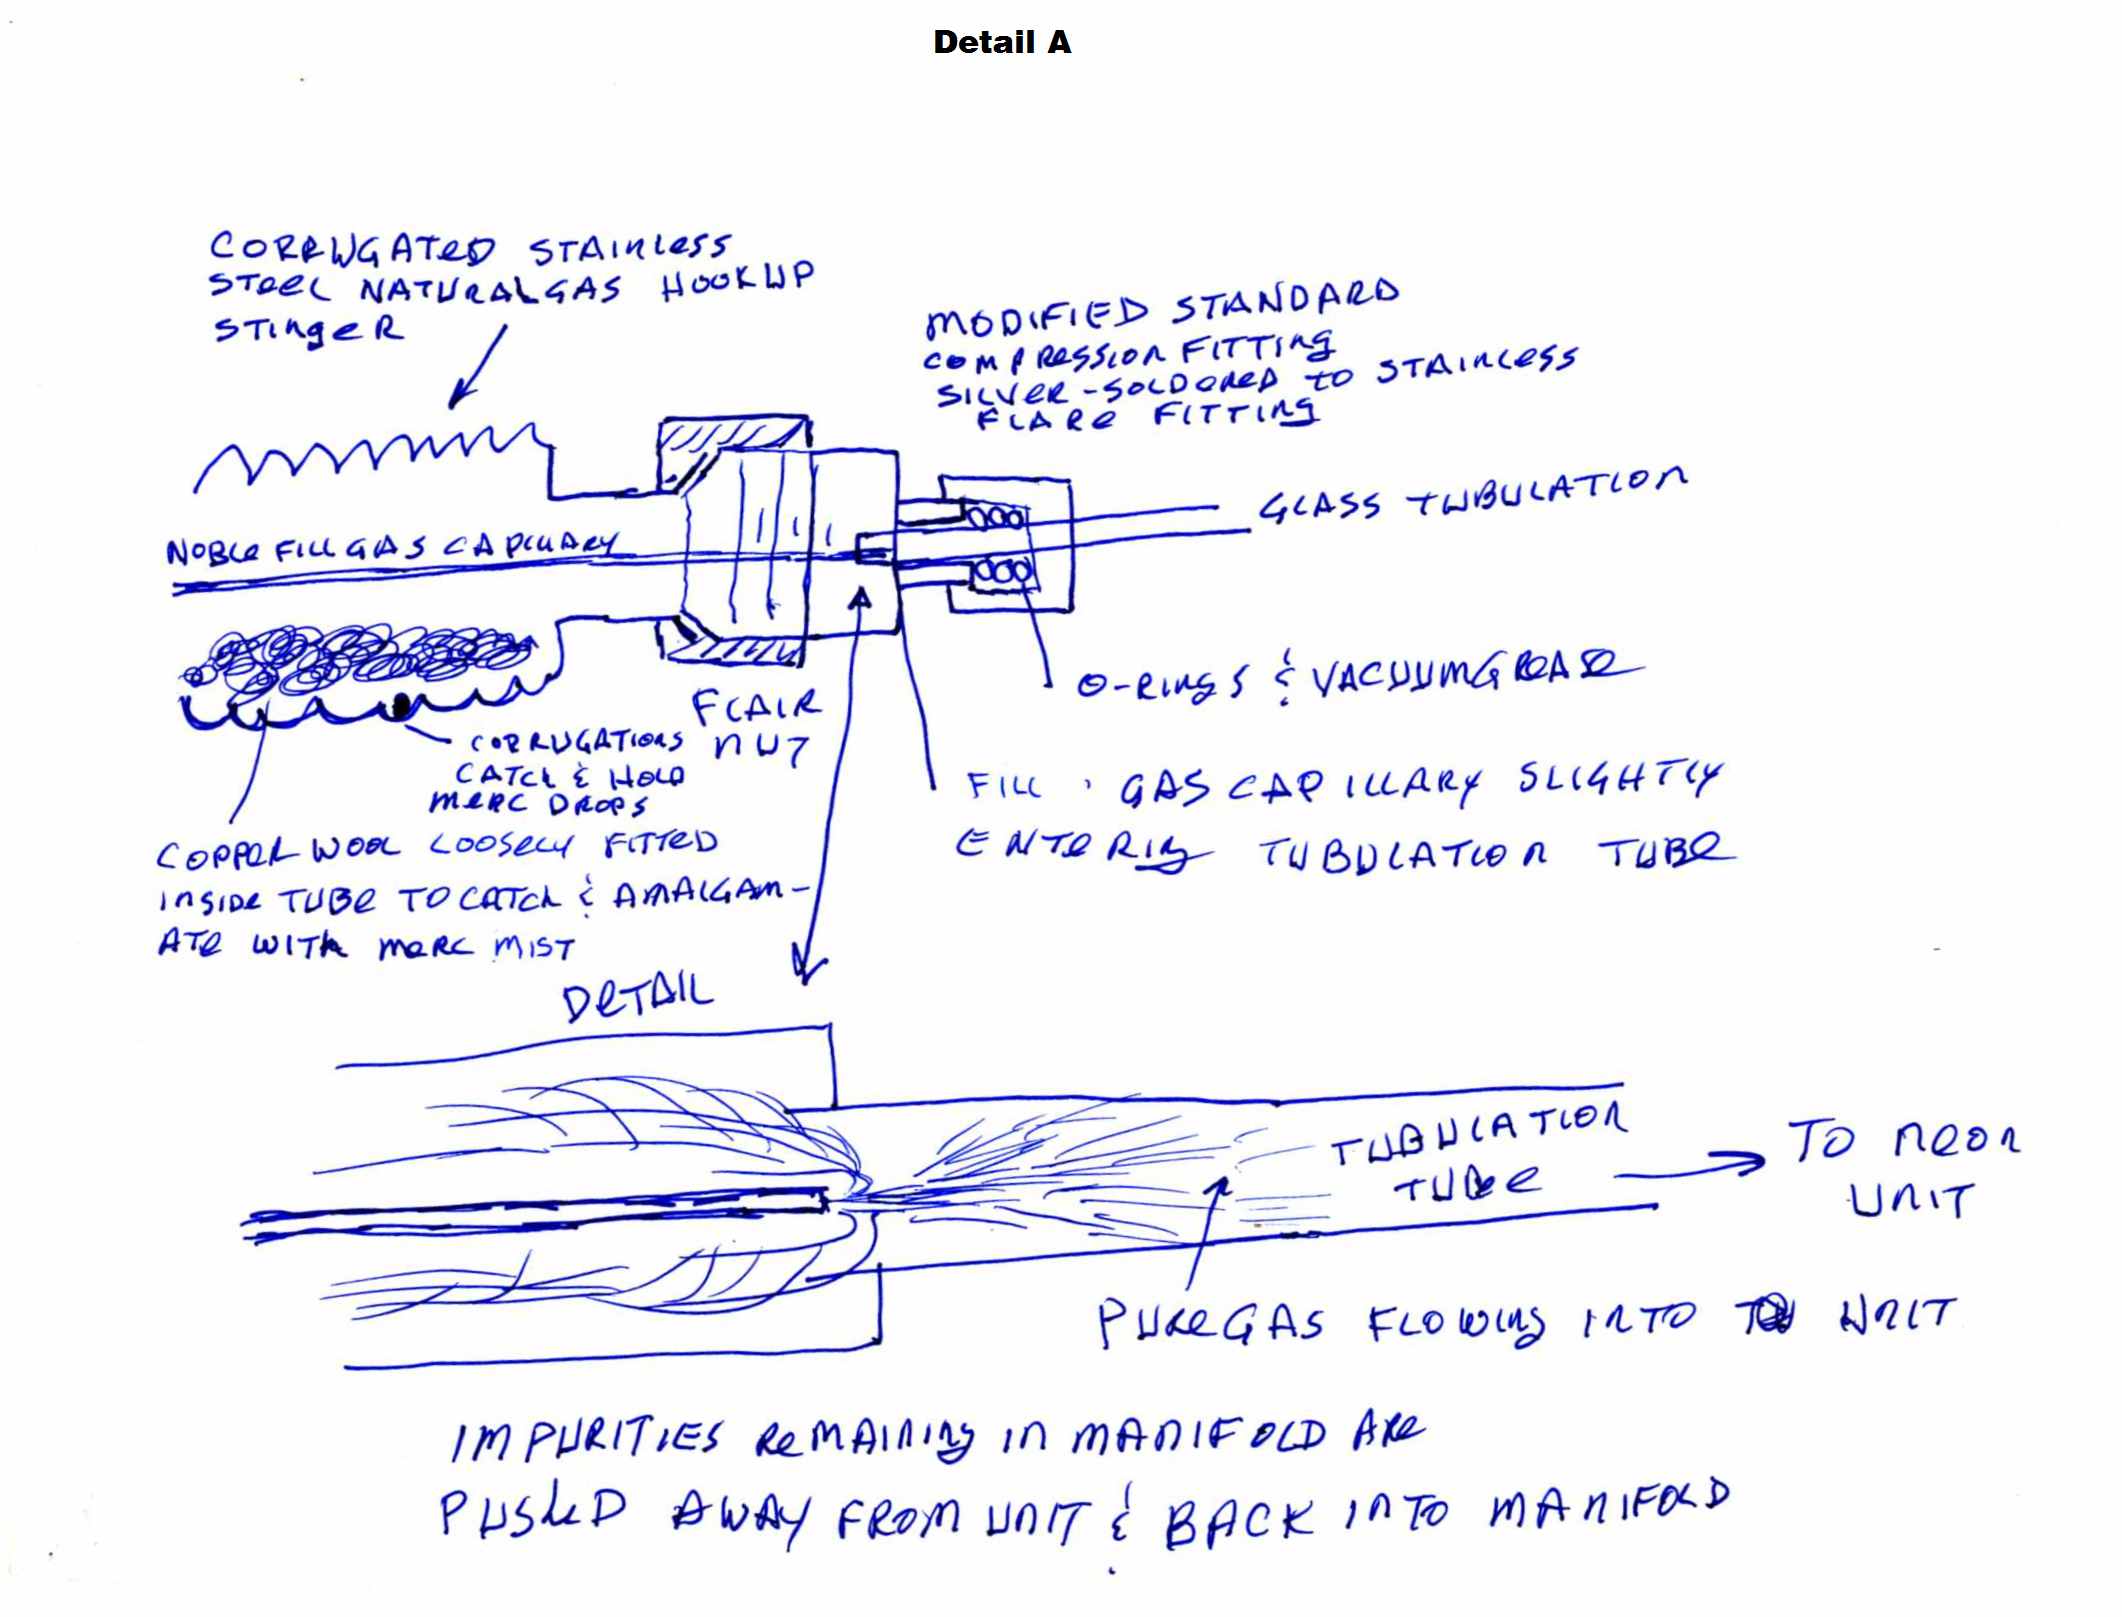 Detail A
CORRUGATED STAINLESS
STEEL NATURAL GAS HOOKUP
STINGER
MODIFIED STANDARD
COMPRESSION FITTING
SILVER-SOLDORED TO STAINLESS
FLARE FITTING
GLASS TUBULATION
NOBLE FILL GAS CAPILLARY
O-RINGS & VACUUM GREASE
FLAIR
NUT
CORRUGATIONS
CATCH & HOLD
MERC DROPS
FILL GAS CAPILLARY SLIGHTLY
ENTERING TUBULATION TUBE
COPPER WOOL LOOSELY FITTED
INSIDE TUBE TO CATCH & AMALGAM-
ATE WITH MERC MIST
DETAIL
TUBULATION
TUBE
TO NEON
UNIT
PURE GAS FLOWING INTO UNIT
IMPURITIES REMAINING IN MANIFOLD ARE
PUSHED AWAY FROM UNIT & BACK INTO MANIFOLD